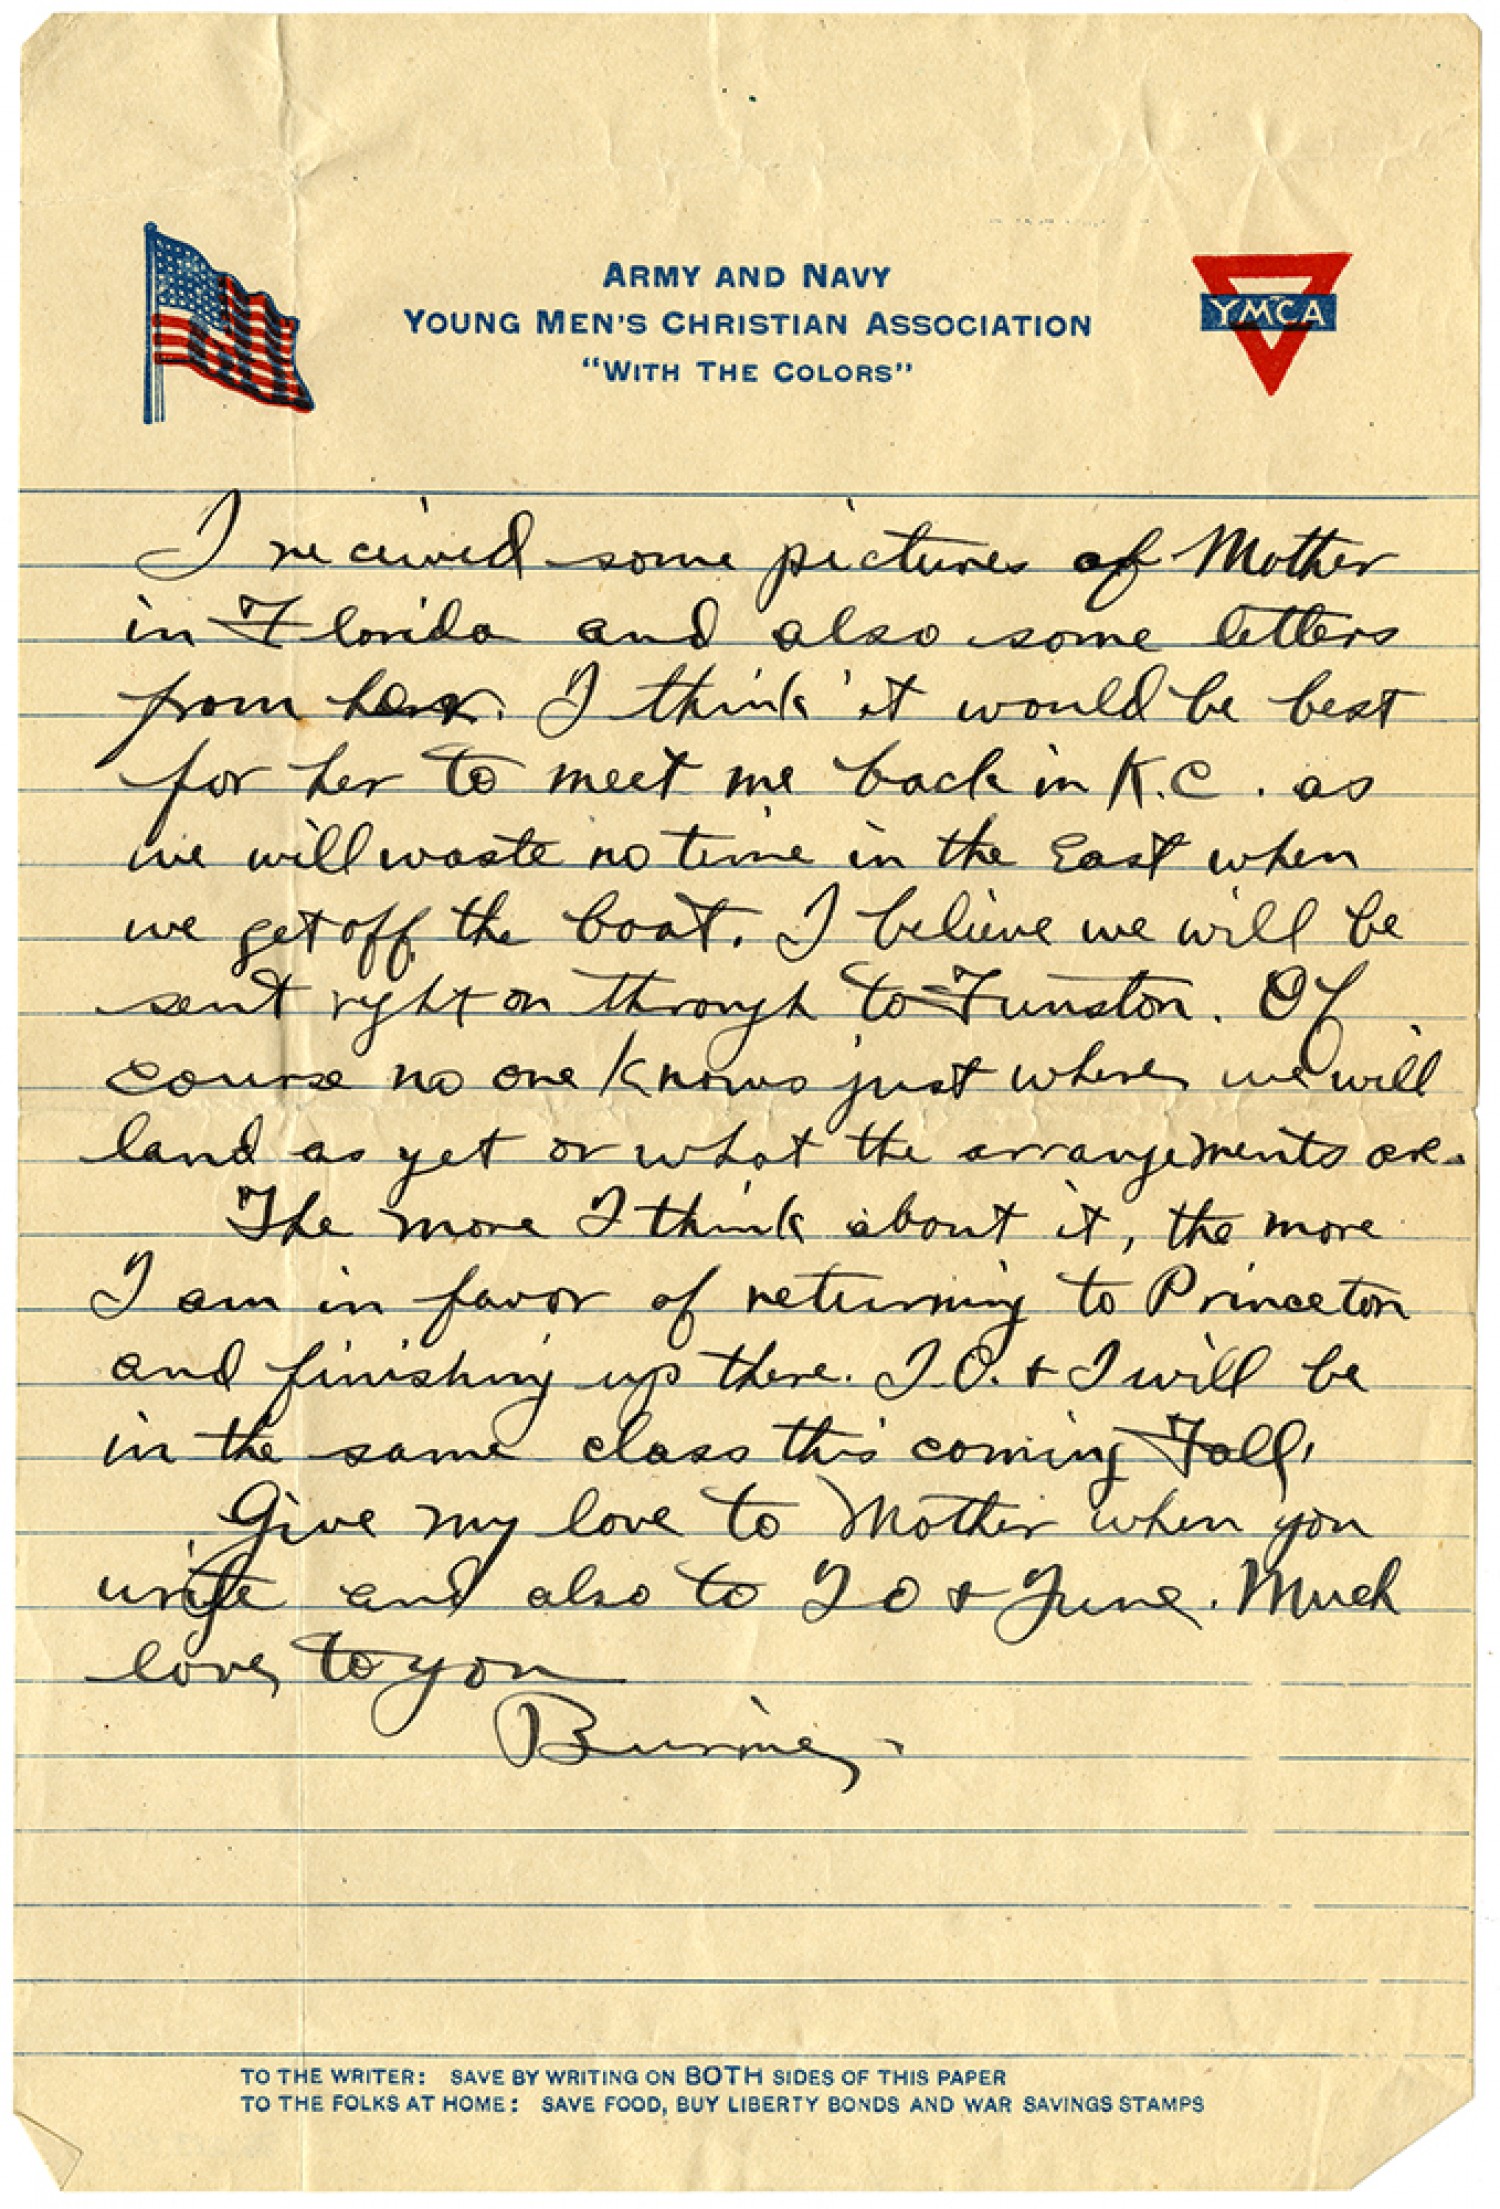 ARMY AND NAVY
YOUNG MEN'S CHRISTIAN ASSOCIATION
"WITH THE COLORS"
YMCA
I received some pictures of Mother
in Florida and also some letters
from her. I think it would be best
for her to meet me back in K.C. as
we will waste no time in the East when
we get off the boat. I believe we will be
sent right on through to Funston. Of
course no one knows just where we will
land as yet or what the arrangements are.
The more I think about it, the more
I am in favor of returning to Princeton
and finishing up there. J.O. + I will be
in the same class this coming Fall.
Give my love to Mother when you
write and also to J O + June. Much
love to you
TO THE WRITER: SAVE BY WRITING ON BOTH SIDES OF THIS PAPER
TO THE FOLKS AT HOME: SAVE FOOD, BUY LIBERTY BONDS AND WAR SAVINGS STAMPS